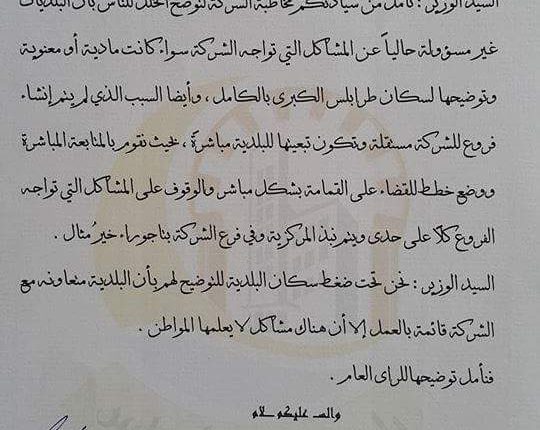 السيد الوزير : نأمل من سيادتكم مخاطبة الشركة لتوضح الخلل للناس بأن البلديات
غير مسؤولة حالياً عن المشاكل التي تواجه الشركة سواء كانت مادية أو معنوية
وتوضيحها لسكان طرابلس الكبرى بالكامل ، وأيضا السبب الذي لم يتم إنشاء
فروع للشركة مستقلة وتكون تبعيتها للبلدية مباشرةً ، بحيث نقوم بالمتابعة المباشرة
ووضع خطط للقضاء على القمامة بشكل مباشر والوقوف على المشاكل التي تواجه
الفروع كلاً على حدى ويتم نبذ المركزية وفي فرع الشركة بتاجوراء خيرُ مثال .
السيد الوزير : نحن تحت ضغط سكان البلدية للتوضيح لهم بأن البلدية متعاونه مع
الشركة قائمة بالعمل إلا أن هناك مشاكل لا يعلمها المواطن .
فنأمل توضيحها للراى العام .
والسـ عليكم ـلام